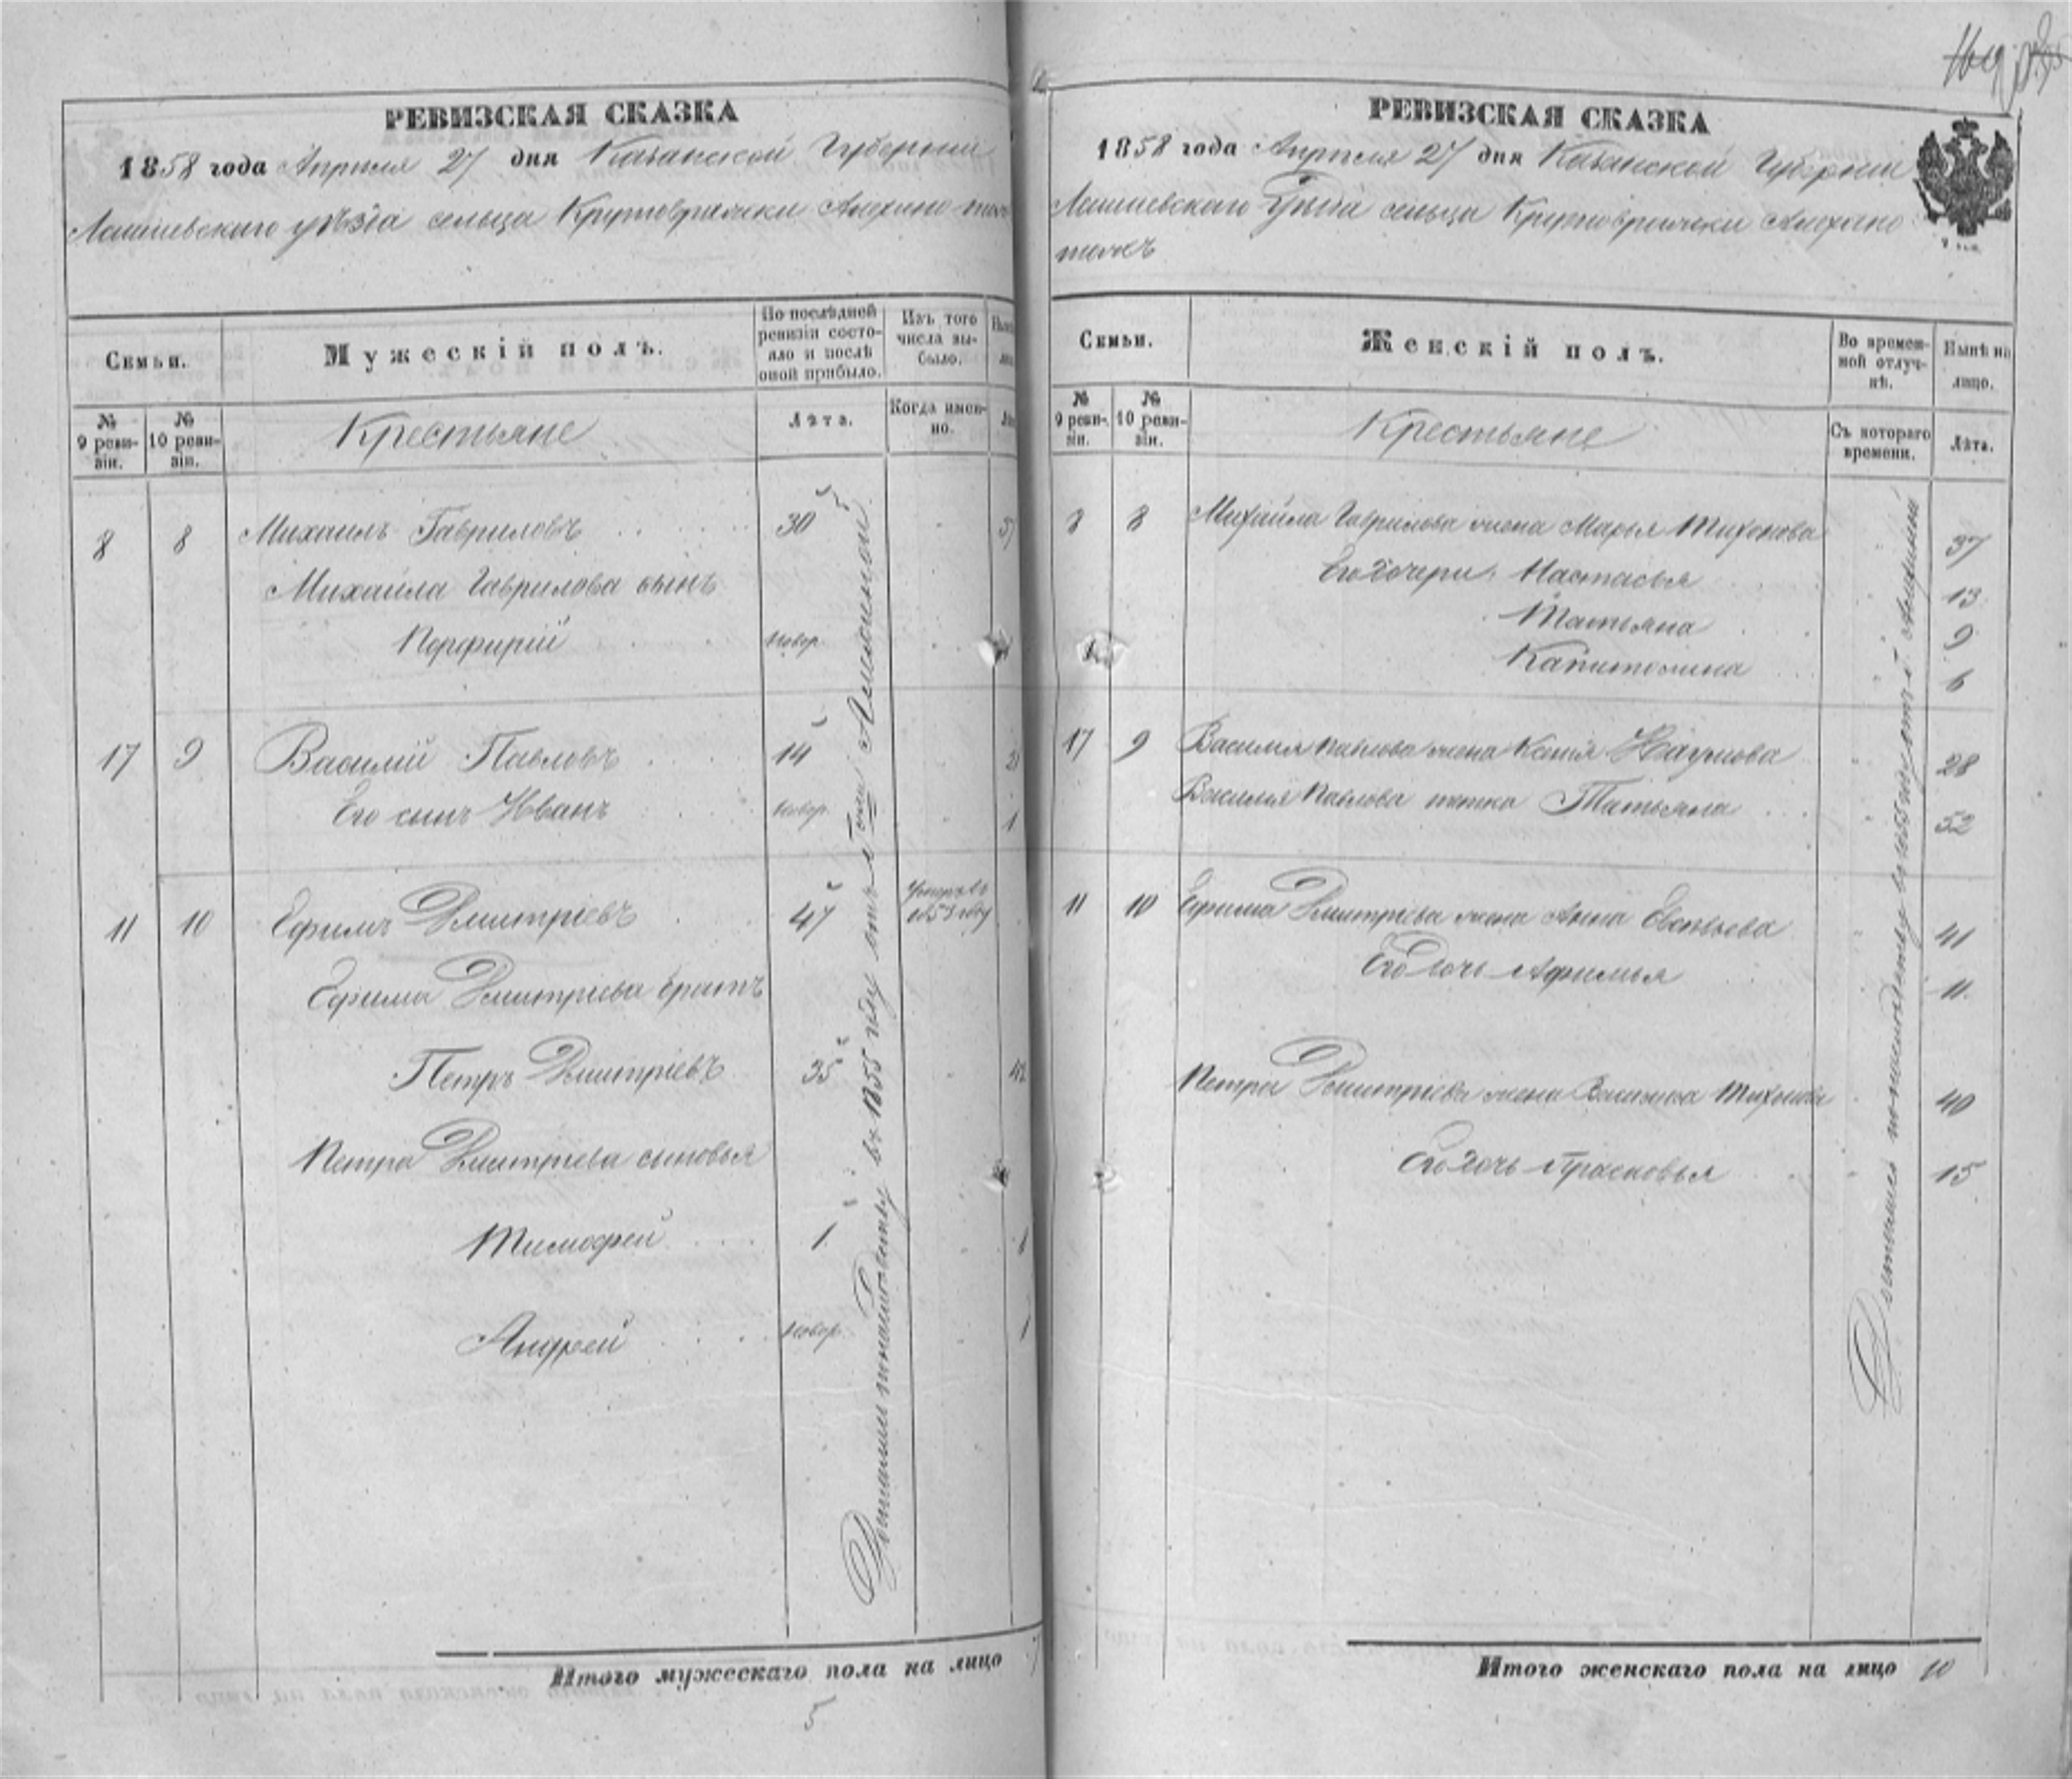 РЕВИЗСКАЯ СКАЗКА
1858 года Апреля 27 дня Казанской Губернии
Лаишевскаго уѣзда сельца Крутовражки Алехино тожъ
Семьи.
Мужескій полъ.
По послѣдней ревизіи состояло и послѣ оной прибыло.
Изъ того числа выбыло.
№ 9 ревизіи.
№ 10 ревизіи.
Крестьяне
Лѣта.
Когда именно.
8 8 Михаилъ Гавриловъ 30
Михаила Гаврилова сынъ
Порфирій новор.
17 9 Василій Павловъ 14 21
Его сынъ Иванъ новор. 1
11 10 Ефимъ Дмитріевъ 47 Умеръ въ 1853 году
Ефима Дмитріева братъ
Петръ Дмитріевъ 35 42
Петра Дмитріева сыновья
Тимофей 1 8
Андрей новор. 1
въ 1855 году отъ
Итого мужескаго пола на лицо 7
5
РЕВИЗСКАЯ СКАЗКА
1858 года Апреля 27 дня Казанской Губернии
Лаишевскаго Уѣзда сельца Крутовражки Алехино
тожъ
Семьи.
Женскій полъ.
Во временной отлучкѣ.
Нынѣ на лицо.
№ 9 ревизіи.
№ 10 ревизіи.
Крестьяне
Съ котораго времени.
Лѣта.
8 8 Михайла Гаврилова жена Марья Тихонова 37
Его дочери: Настасья 13
Татьяна 9
Капитолина 6
17 9 Василья Павлова жена Ксенія Наумова 28
Василья Павлова тетка Татьяна 52
11 10 Ефима Дмитріева жена Анна 41
Его дочь Афимья 11
Петра Дмитріева жена Василиса Тихонова 40
Его дочь Прасковья 15
Итого женскаго пола на лицо 10